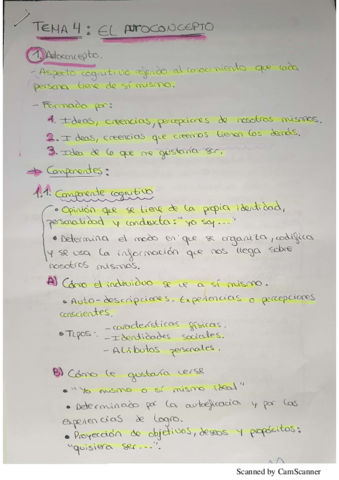 TEMA 4: EL AUTOCONCEPTO
1. Autoconcepto.
- Aspecto cognitivo referido al conocimiento que cada
persona tiene de sí mismo.
- Formado por:
1. Ideas, creencias, percepciones de nosotros mismos.
2. Ideas, creencias que creemos tienen los demás.
3. Idea de lo que me gustaría ser.
→ Componentes:
1.1. Componente cognitivo
• Opinión que se tiene de la propia identidad,
personalidad y conducta: "yo soy..."
• Determina el modo en que se organiza, codifica
y se usa la información que nos llega sobre
nosotros mismos.
A) Cómo el individuo se ve a sí mismo.
• Auto-descripciones. Experiencias o percepciones
conscientes.
• Tipos: - características físicas.
- Identidades sociales.
- Atributos personales.
B) Cómo le gustaría verse
• "Yo mismo o sí mismo ideal"
• Determinado por la autoeficacia y por las
experiencias de logro.
• Proyección de objetivos, deseos y propósitos:
"quisiera ser...".
Scanned by CamScanner